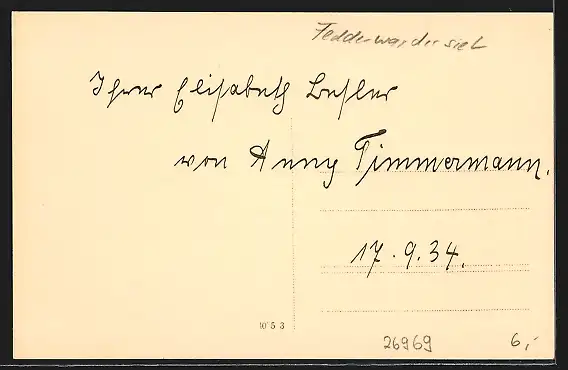 Fedderwardersiel
Ihrer Elisabeth Besler
von Anny Timmermann.
17.9.34.
10'5 3
26969
6,-